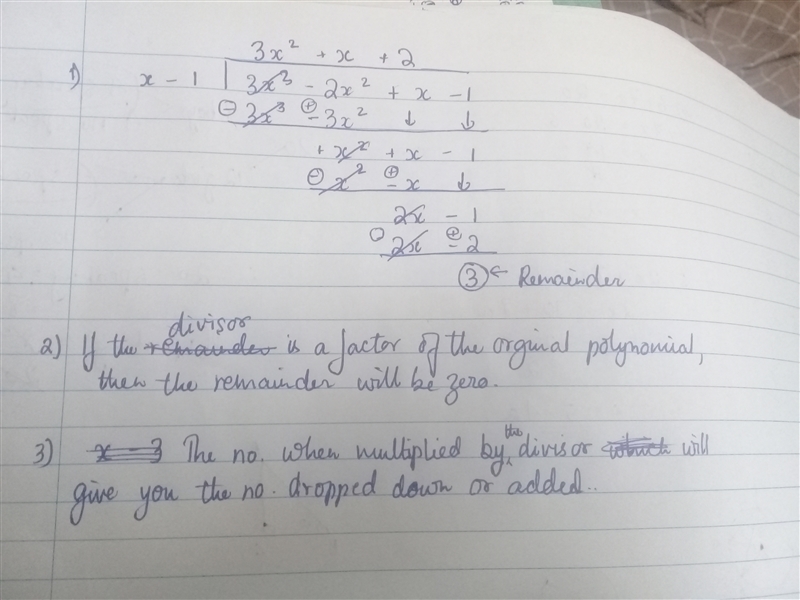 3x² + x + 2
1) x - 1 | 3x³ - 2x² + x - 1
⊖ 3x³ ⊕ - 3x² ↓ ↓
+ x² + x - 1
⊖ x² ⊕ - x ↓
2x - 1
○ 2x ⊕ - 2
③ ← Remainder
divisor
2) If the remainder is a factor of the orginal polynomial,
then the remainder will be zero.
3) x - 3 The no. when multiplied by the divisor which will
give you the no. dropped down or added..